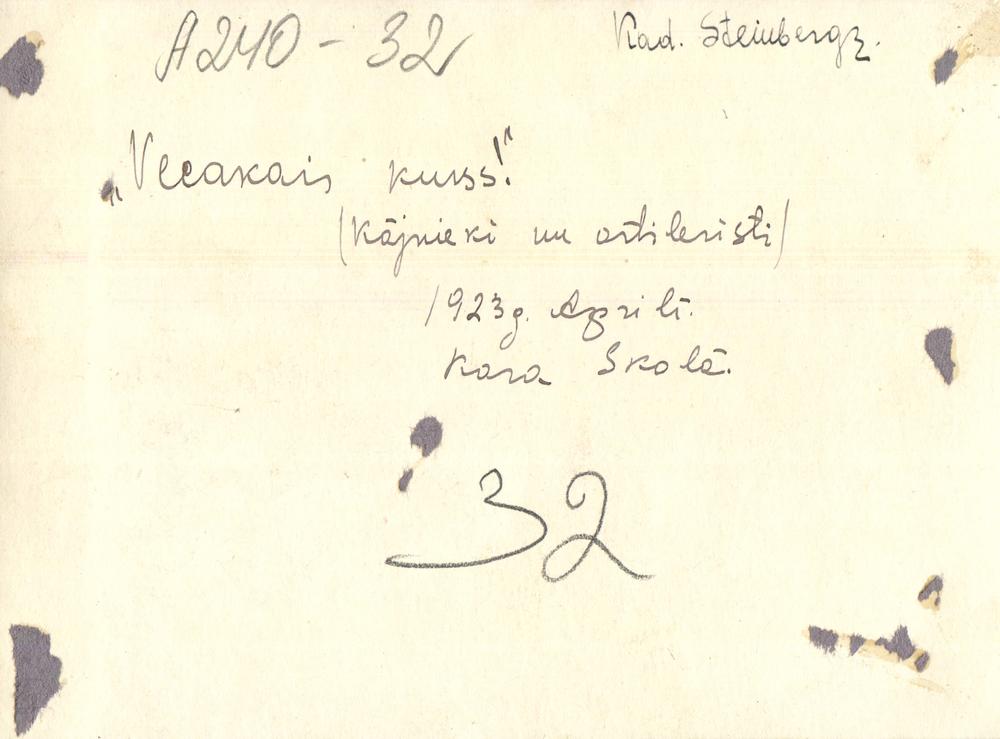 A240-32
Kad. Steinbergs.
„Vecakais kurss!“
(Kājnieki un artileristi)
1923g. Aprīlī.
Kara Skolā.
32